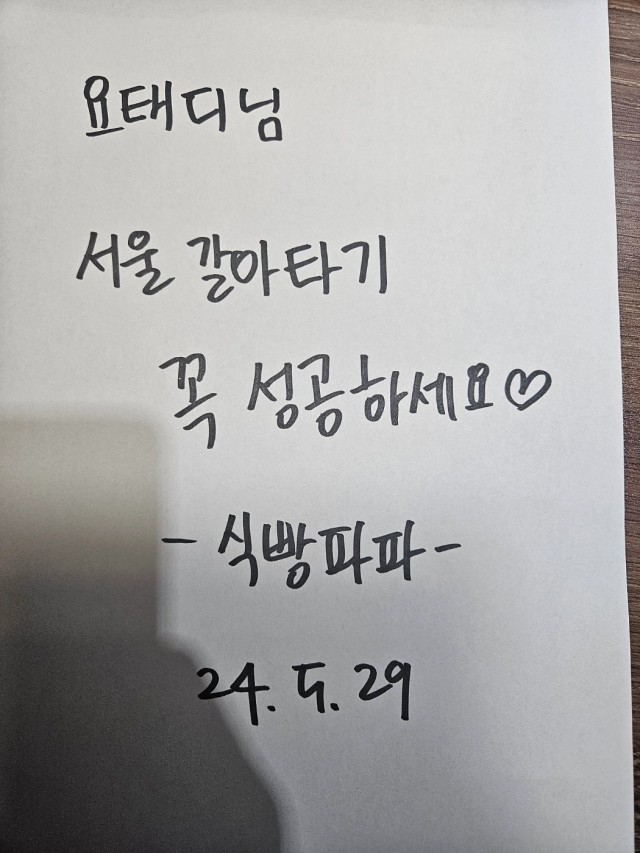 요태디님
서울 갈아타기
꼭 성공하세요♡
- 식빵파파 -
24. 5. 29